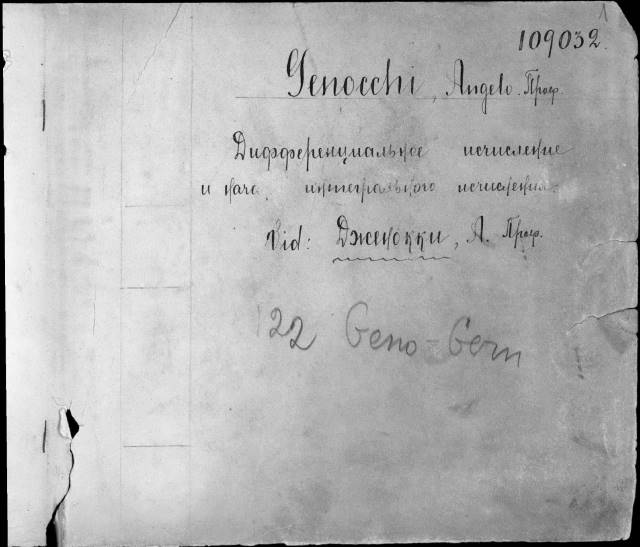 1
109032.
Genocchi, Angelo. Проф.
Дифференциальное исчисление
и нача. интегрального исчисления.
Vid: Дженокки, А. Проф.
122 Geno-Gern